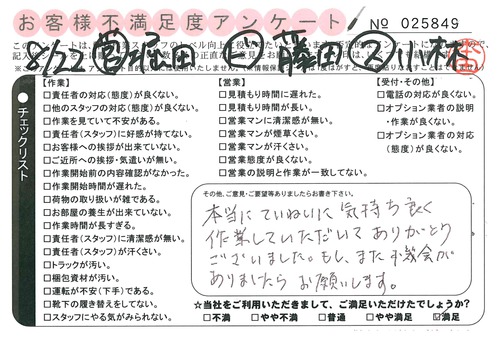 お客様不満足度アンケート
No 025849
8/22 営 堀田 ○ 藤田 ② 小林
チェックリスト
【作業】
□責任者の対応(態度)が良くない。
□他のスタッフの対応(態度)が良くない。
□作業を見ていて不安がある。
□責任者(スタッフ)に好感が持てない。
□お客様への挨拶が出来ていない。
□ご近所への挨拶・気遣いが無い。
□作業開始前の内容確認がなかった。
□作業開始時間が遅れた。
□荷物の取り扱いが雑である。
□お部屋の養生が出来ていない。
□作業時間が長すぎる。
□責任者(スタッフ)に清潔感が無い。
□責任者(スタッフ)が汗くさい。
□トラックが汚い。
□梱包資材が汚い。
□運転が不安(下手)である。
□靴下の履き替えをしてない。
□スタッフにやる気がみられない。
【営業】
□見積もり時間に遅れた。
□見積もり時間が長い。
□営業マンに清潔感が無い。
□営業マンが煙草くさい。
□営業マンが汗くさい。
□営業態度が良くない。
□営業の説明と作業が一致してない。
【受付・その他】
□電話の対応が良くない。
□オプション業者の説明
・作業が良くない。
□オプション業者の対応
(態度)が良くない。
その他、ご意見・ご要望等ありましたらお書き下さい。
本当にていねいに気持ち良く
作業していただいてありがとう
ございました。もし、また機会が
ありましたらお願いします。
☆当社をご利用いただきまして、ご満足いただけたでしょうか?
□不満 □やや不満 □普通 □やや満足 ☑満足